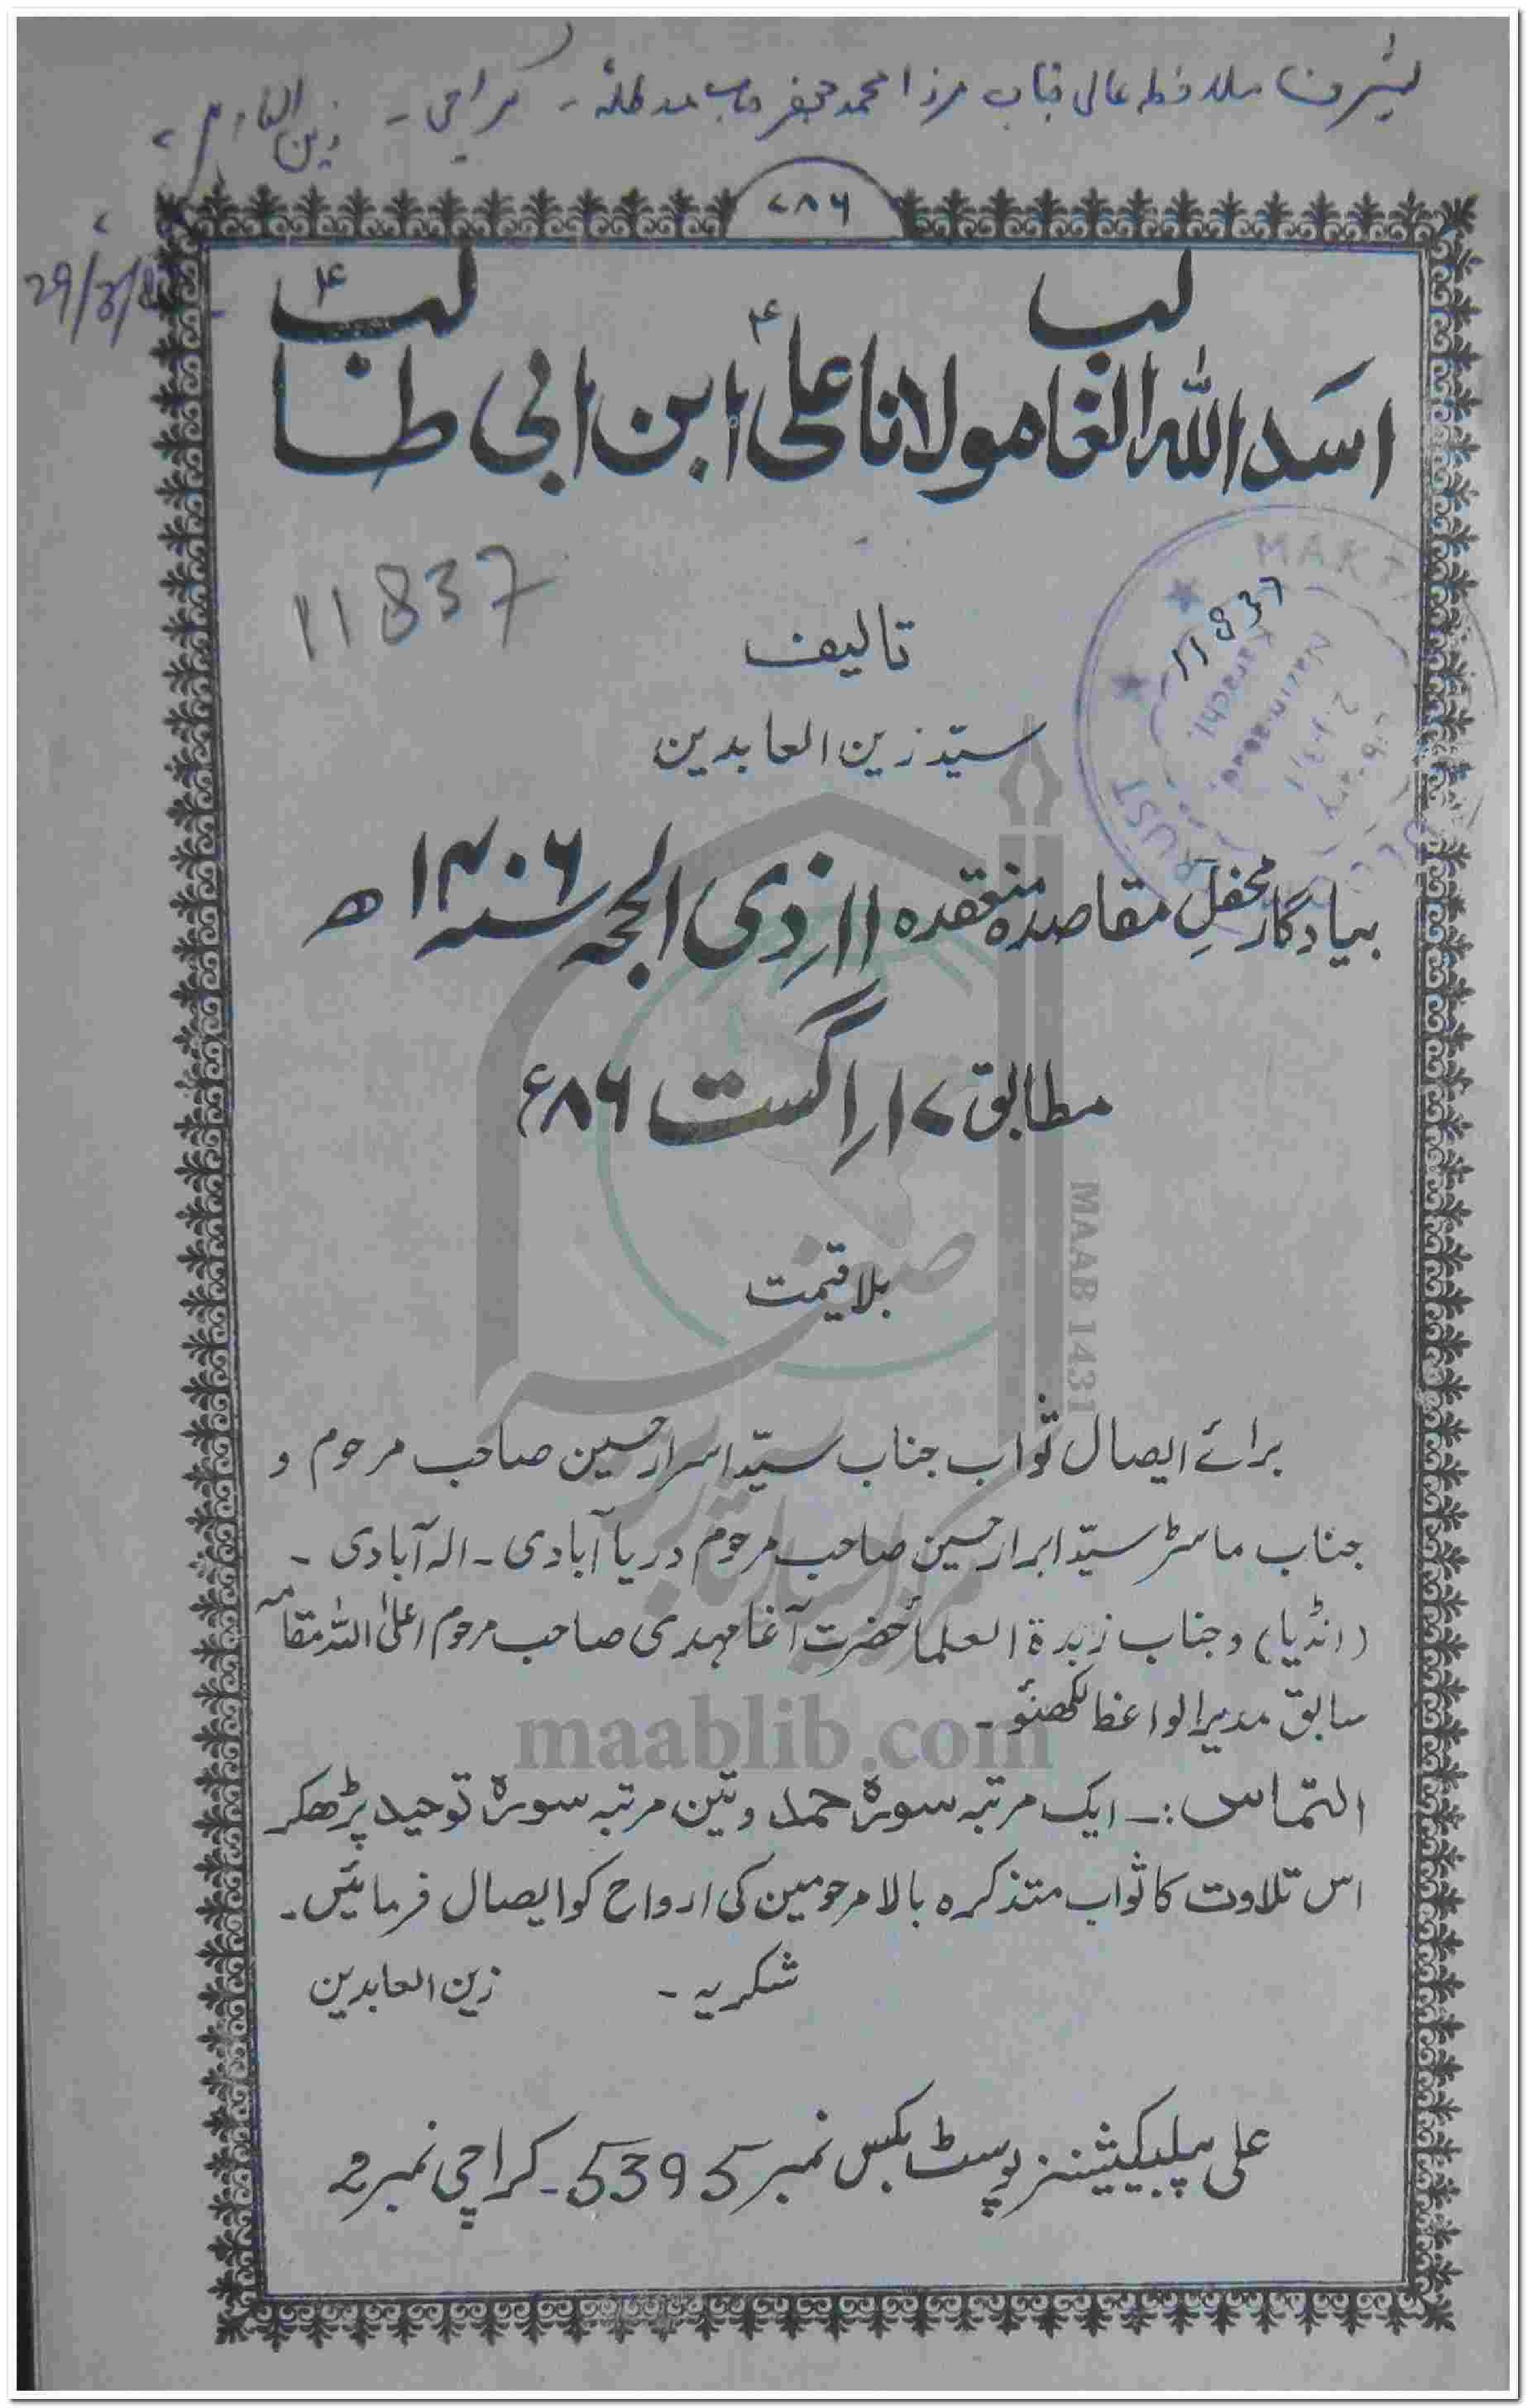 بشرف ملاحظہ عالی جناب مرزا محمد جعفر صاحب مدظلہ - کراچی -
29/3/87
۷۸۶
اسد اللہ الغالب مولانا علیؑ ابن ابی طالبؑ
11837
MAKT
11837
Karachi.
تالیف
سیّد زین العابدین
بیادگار محفلِ مقاصدہ منعقدہ ۱۱؍ ذی الحجہ سنہ ۱۴۰۶ھ
مطابق ۱۷؍ اگست ۸۶ء
MAAB 1431
بلا قیمت
برائے ایصال ثواب جناب سیّد اسرار حسین صاحب مرحوم و
جناب ماسٹر سیّد ابرار حسین صاحب مرحوم دریا آبادی ۔ الہ آبادی ۔
(انڈیا) و جناب زبدۃ العلماء حضرت آغا مہدی صاحب مرحوم اعلیٰ اللہ مقامہ
سابق مدیر الواعظ لکھنؤ ۔
maablib.com
التماس :۔ ایک مرتبہ سورۃ حمد و تین مرتبہ سورۃ توحید پڑھکر
اس تلاوت کا ثواب متذکرہ بالا مرحومین کی ارواح کو ایصال فرمائیں ۔
شکریہ ۔ زین العابدین
علی پبلیکیشنز پوسٹ بکس نمبر 5395 ۔ کراچی نمبر 2